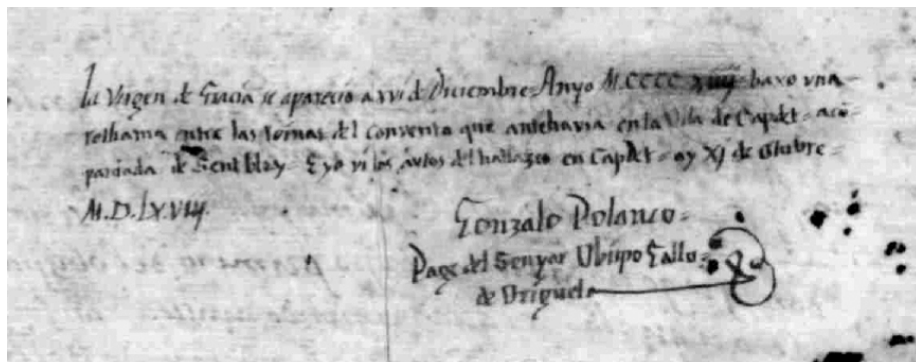 la Virgen de Gracia se aparecio a xvi de Diciembre Anyo M.CCCC xiiij baxo una
rethama entre las roinas del convento que antehavia en la Vila de Capdet = acō-
panada de Sent blay = E yo vi los autos del hallazgo en Capdet = oy XJ de Otubre =
M.D.lX.Viij.
Gonzalo Polanco =
Page del Senyor Ubispo Gallo =
de Origuela